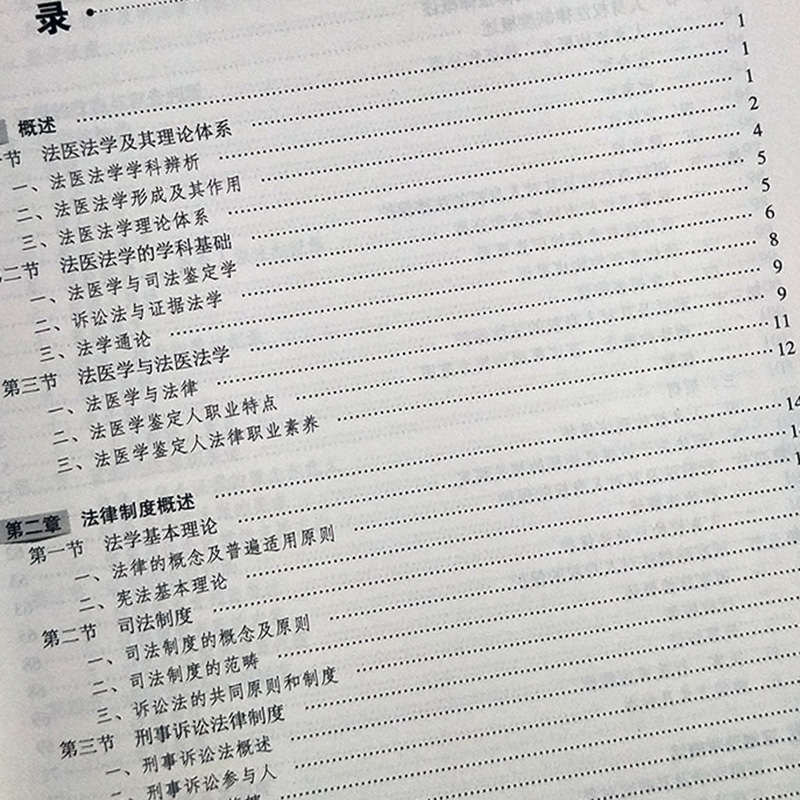 录
概述 1
一节 法医法学及其理论体系 1
一、法医法学学科辨析 1
二、法医法学形成及其作用 2
三、法医法学理论体系 4
二节 法医法学的学科基础 5
一、法医学与司法鉴定学 5
二、诉讼法与证据法学 6
三、法学通论 8
第三节 法医学与法医法学 9
一、法医学与法律 9
二、法医学鉴定人职业特点 11
三、法医学鉴定人法律职业素养 12
第二章 法律制度概述 14
第一节 法学基本理论
一、法律的概念及普遍适用原则
二、宪法基本理论
第二节 司法制度
一、司法制度的概念及原则
二、司法制度的范畴
三、诉讼法的共同原则和制度
第三节 刑事诉讼法律制度
一、刑事诉讼法概述
二、刑事诉讼参与人